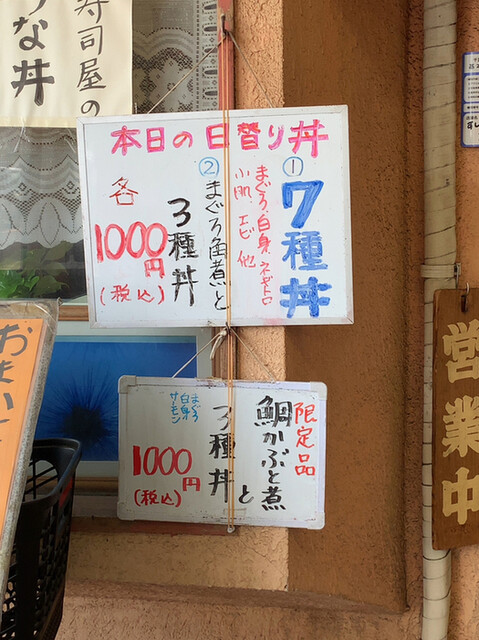 寿司屋の
うな丼
本日の日替り丼
①
7種丼
まぐろ、白身、ネギトロ
小肌、エビ 他
②
まぐろ角煮と
3種丼
各
1000円
(税込)
限定品
鯛かぶと煮
と
3種丼
まぐろ
白身
サーモン
1000円
(税込)
営業中
おまか